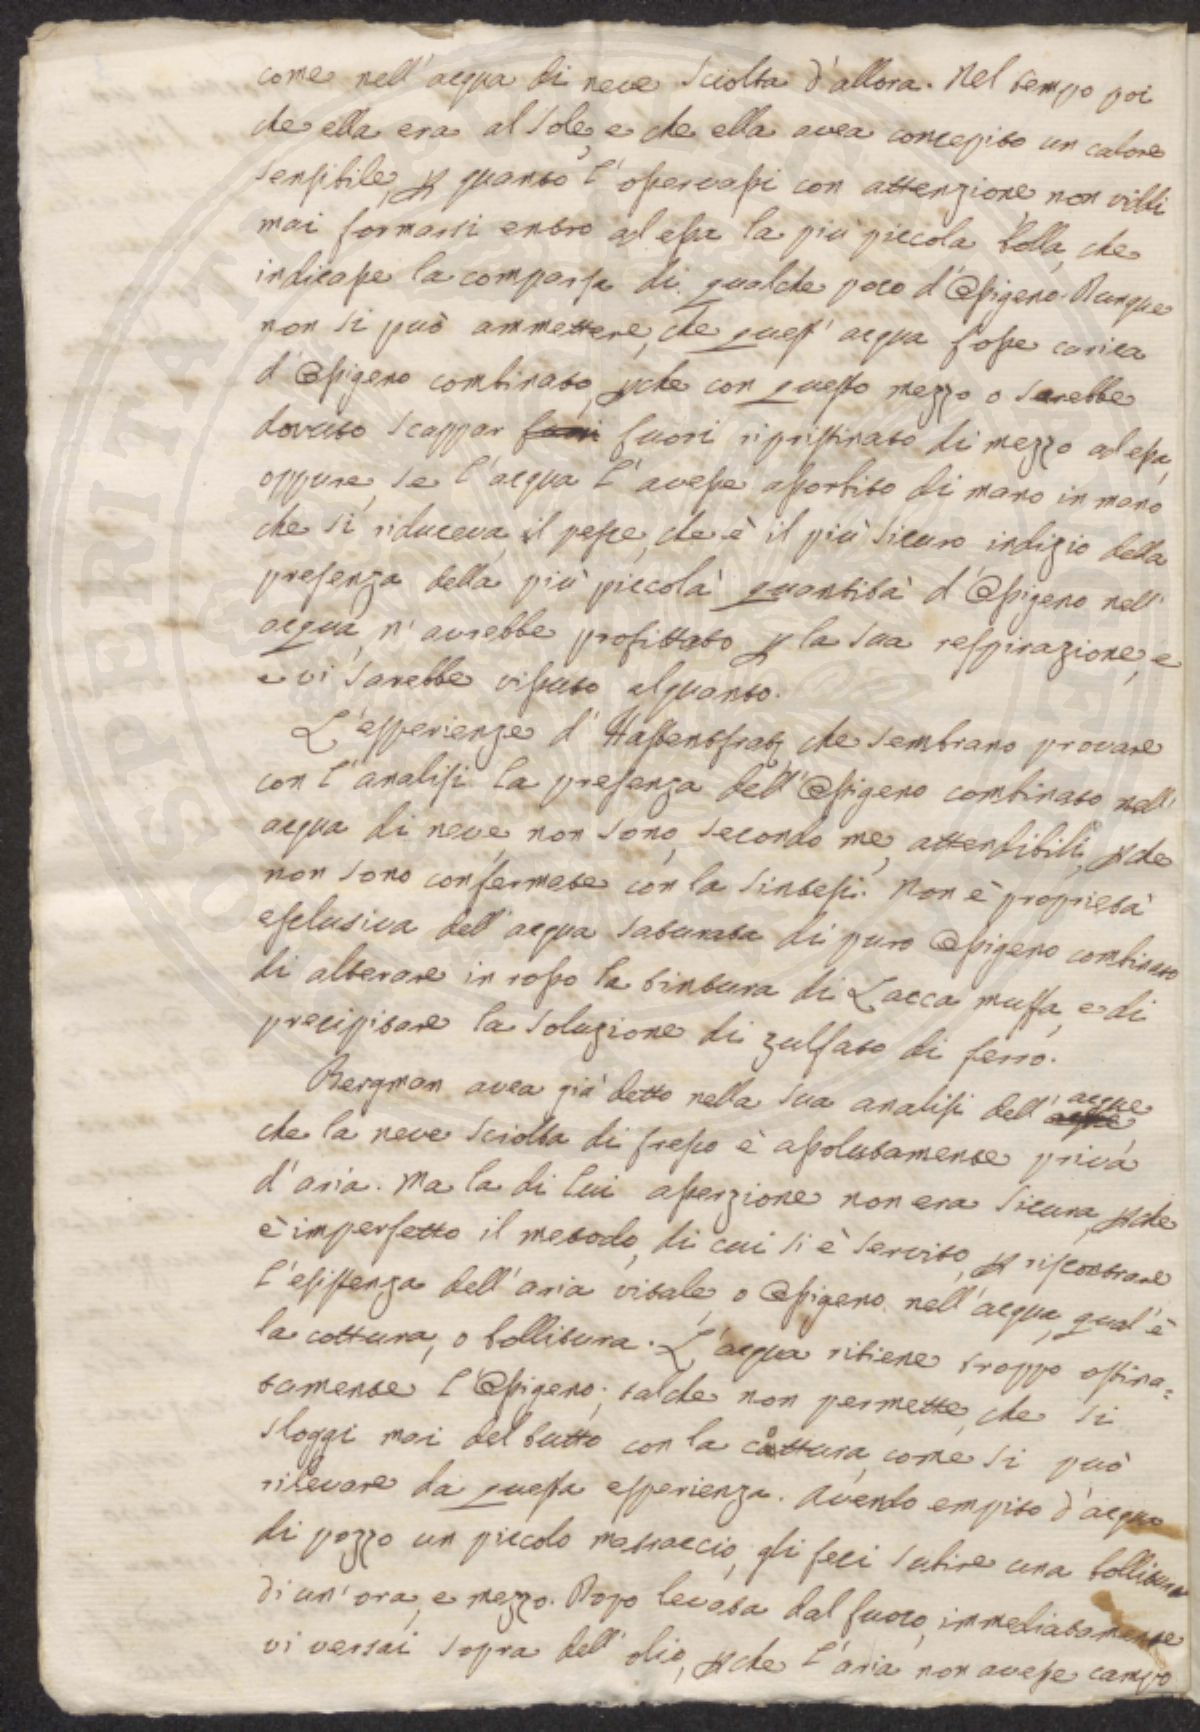 come nell'acqua di neve sciolta d'allora. Nel tempo poi
che ella era al Sole, e che ella avea concepito un calore
sensibile, p quanto l'osservassi con attenzione non viddi
mai formarsi entro ad essa la più piccola Bolla, che
indicasse la comparsa di qualche poco d'Ossigeno. Dunque
non si può ammettere, che quest'acqua fosse carica
d'Ossigeno combinato, pche con questo mezzo o sarebbe
dovuto scappar fuori fuori ripristinato di mezzo ad essa,
oppure, se l'acqua l'avesse assorbito di mano in mano
che si riduceva, il pesce, che è il più sicuro indizio della
presenza della più piccola quantità d'Ossigeno nell'
acqua, n'avrebbe profittato p la sua respirazione, e
e vi sarebbe vissuto alquanto.
L'esperienze d'Hassenfratz, che sembrano provare
con l'analisi la presenza dell'Ossigeno combinato nell'
acqua di neve, non sono, secondo me, attendibili, pche
non sono confermate con la sintesi. Non è proprietà
esclusiva dell'acqua saturata di puro Ossigeno combinato
di alterare in rosso la tintura di Lacca muffa, e di
precipitare la soluzione di zulfato di ferro.
Bergman avea già detto nella sua analisi dell' acque
che la neve sciolta di fresco è assolutamente priva
d'aria. Ma la di lui asserzione non era sicura, pche
è imperfetto il metodo, di cui si è servito, p riscontrare
l'esistenza dell'aria vitale, o Ossigeno nell'acqua, qual'è
la cottura, o bollitura. L'acqua ritiene troppo ostina=
tamente l'Ossigeno; talche non permette, che si
sloggi mai del tutto con la cottura, come si può
rilevare da questa esperienza. Avendo empito d'acqua
di pozzo un piccolo matraccio, gli feci subire una bollitura
di un'ora, e mezzo. Dopo levata dal fuoco, immediatamente
vi versai sopra dell'olio, pche l'aria non avesse campo